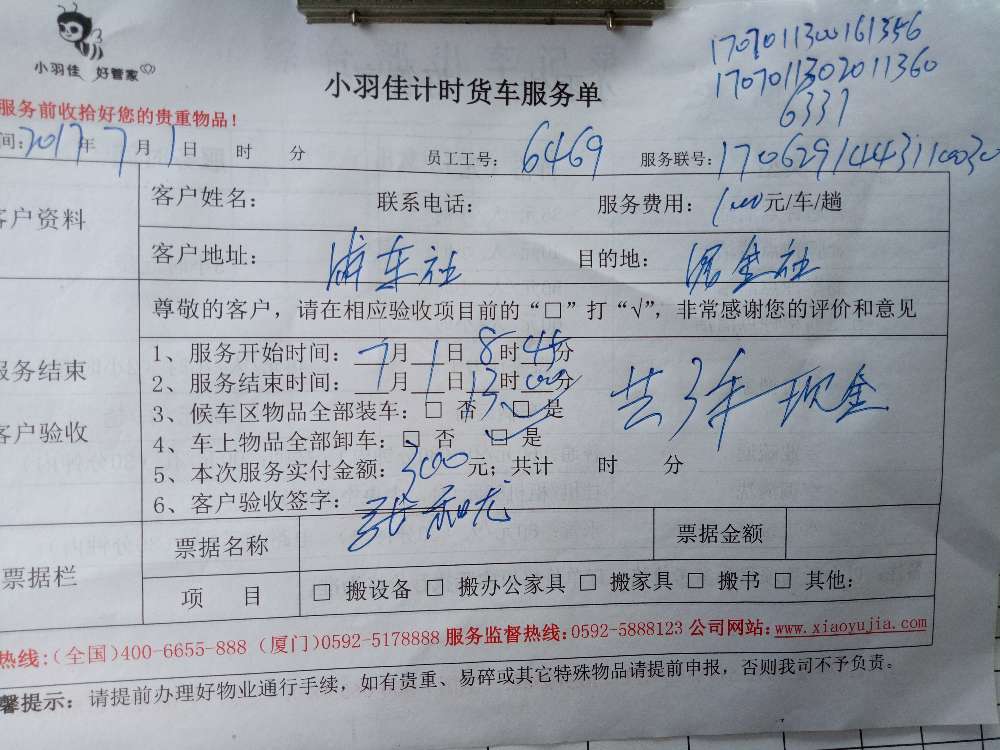 小羽佳 好管家
1707011300161356
1707011302011360
6337
小羽佳计时货车服务单
服务前收拾好您的贵重物品！
间：2017年7月1日 时 分 员工工号：6469 服务联号：17062914443110030
客户资料 客户姓名： 联系电话： 服务费用：100元/车/趟
客户地址： 社 目的地： 社
尊敬的客户，请在相应验收项目前的“□”打“√”，非常感谢您的评价和意见
服务结束
客户验收
1、服务开始时间：7月1日8时45分
2、服务结束时间：7月1日13时00分
共3车 现金
3、候车区物品全部装车：□ 否 □ 是
4、车上物品全部卸车：□ 否 □ 是
5、本次服务实付金额：300元；共计 时 分
6、客户验收签字：
票据栏 票据名称 票据金额
项 目 □ 搬设备 □ 搬办公家具 □ 搬家具 □ 搬书 □ 其他：
热线：(全国)400-6655-888 (厦门)0592-5178888 服务监督热线：0592-5888123 公司网站：www.xiaoyujia.com
馨提示：请提前办理好物业通行手续，如有贵重、易碎或其它特殊物品请提前申报，否则我司不予负责。